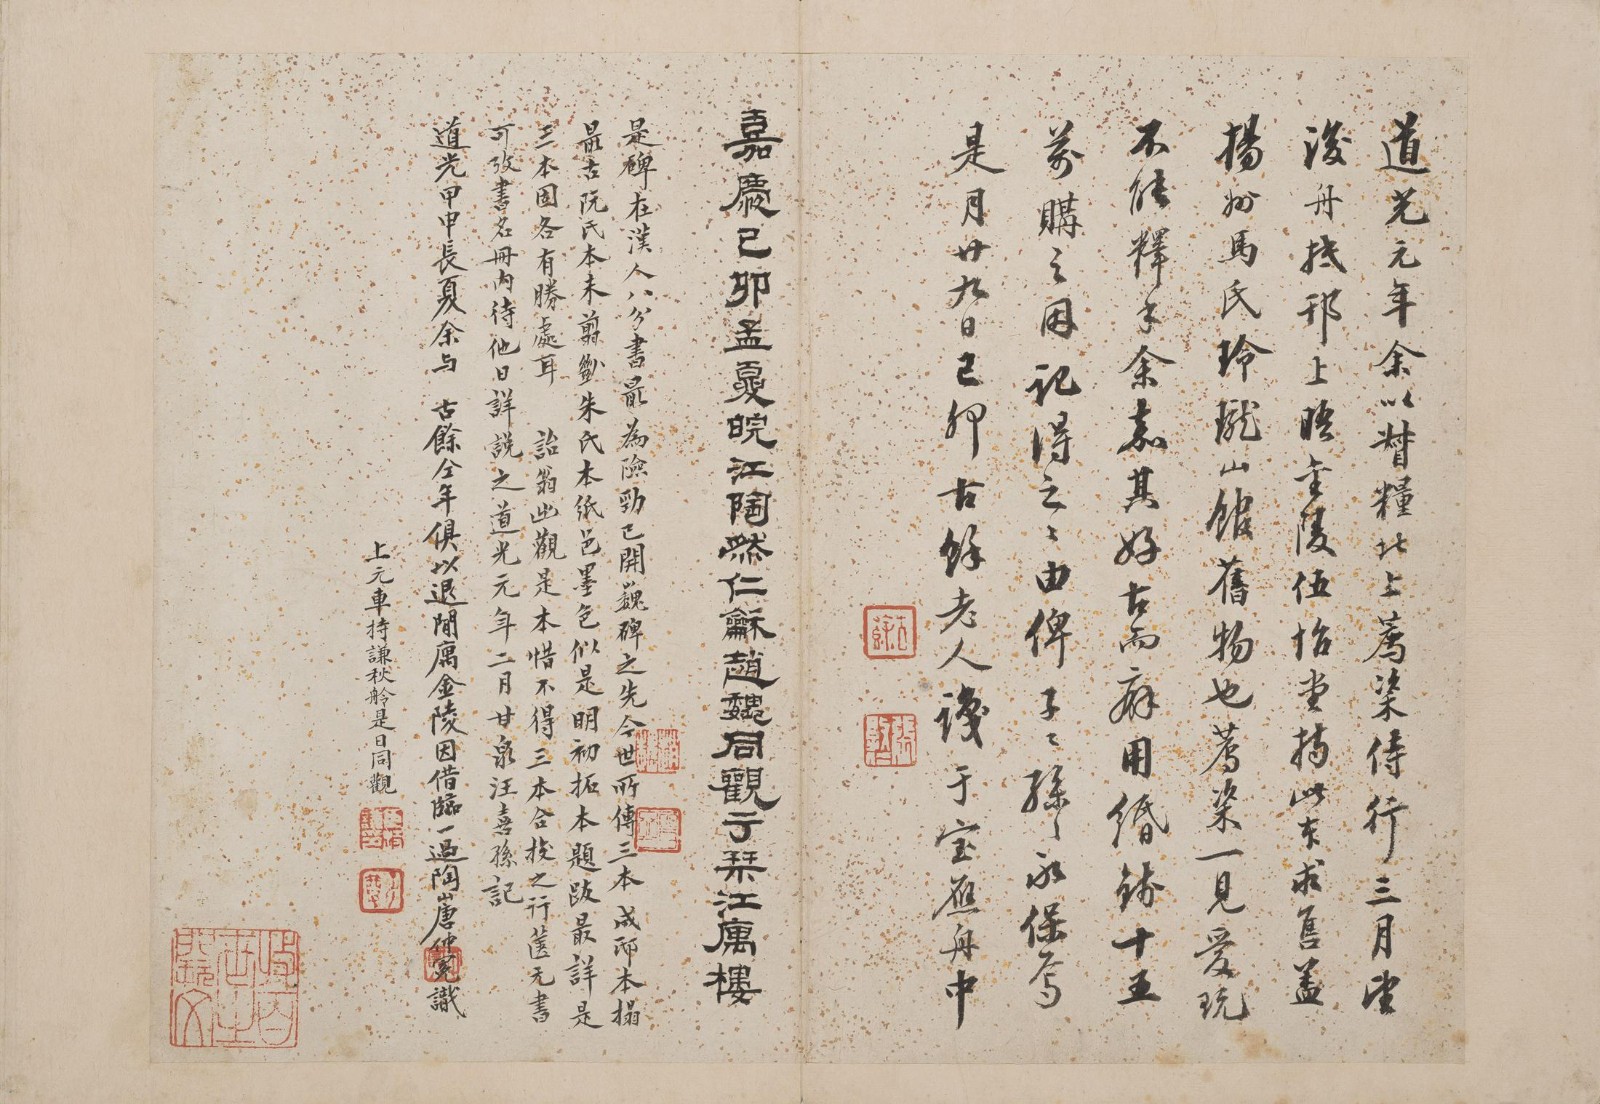 道光元年余以督糧北上薦粢侍行三月望
後舟抵邗上晤金陵伍怡堂持此本求售蓋
揚州馬氏玲瓏山館舊物也薦粢一見愛玩
不能釋手余嘉其好古而癖用緡錢十五
萬購之因記得之之由俾子子孫孫永保焉
是月廿九日己卯古餘老人識于宝應舟中
嘉慶己卯孟夏皖江陶然仁龢趙魏同觀于琹江寓樓
是碑在漢人八分書最為險勁已開魏碑之先今世所傳三本成邸本搨
最古阮氏本未翦斷朱氏本紙色墨色似是明初拓本題跋最詳是
三本固各有勝處耳 詒翁出觀是本惜不得三本合校之行篋无書
可攷書名冊內待他日詳說之道光元年二月甘泉汪喜孫記
道光甲申長夏余与 古餘仝年俱以退閒寓金陵因借臨一過陶唐仲冕識
上元車持謙秋舲是日同觀